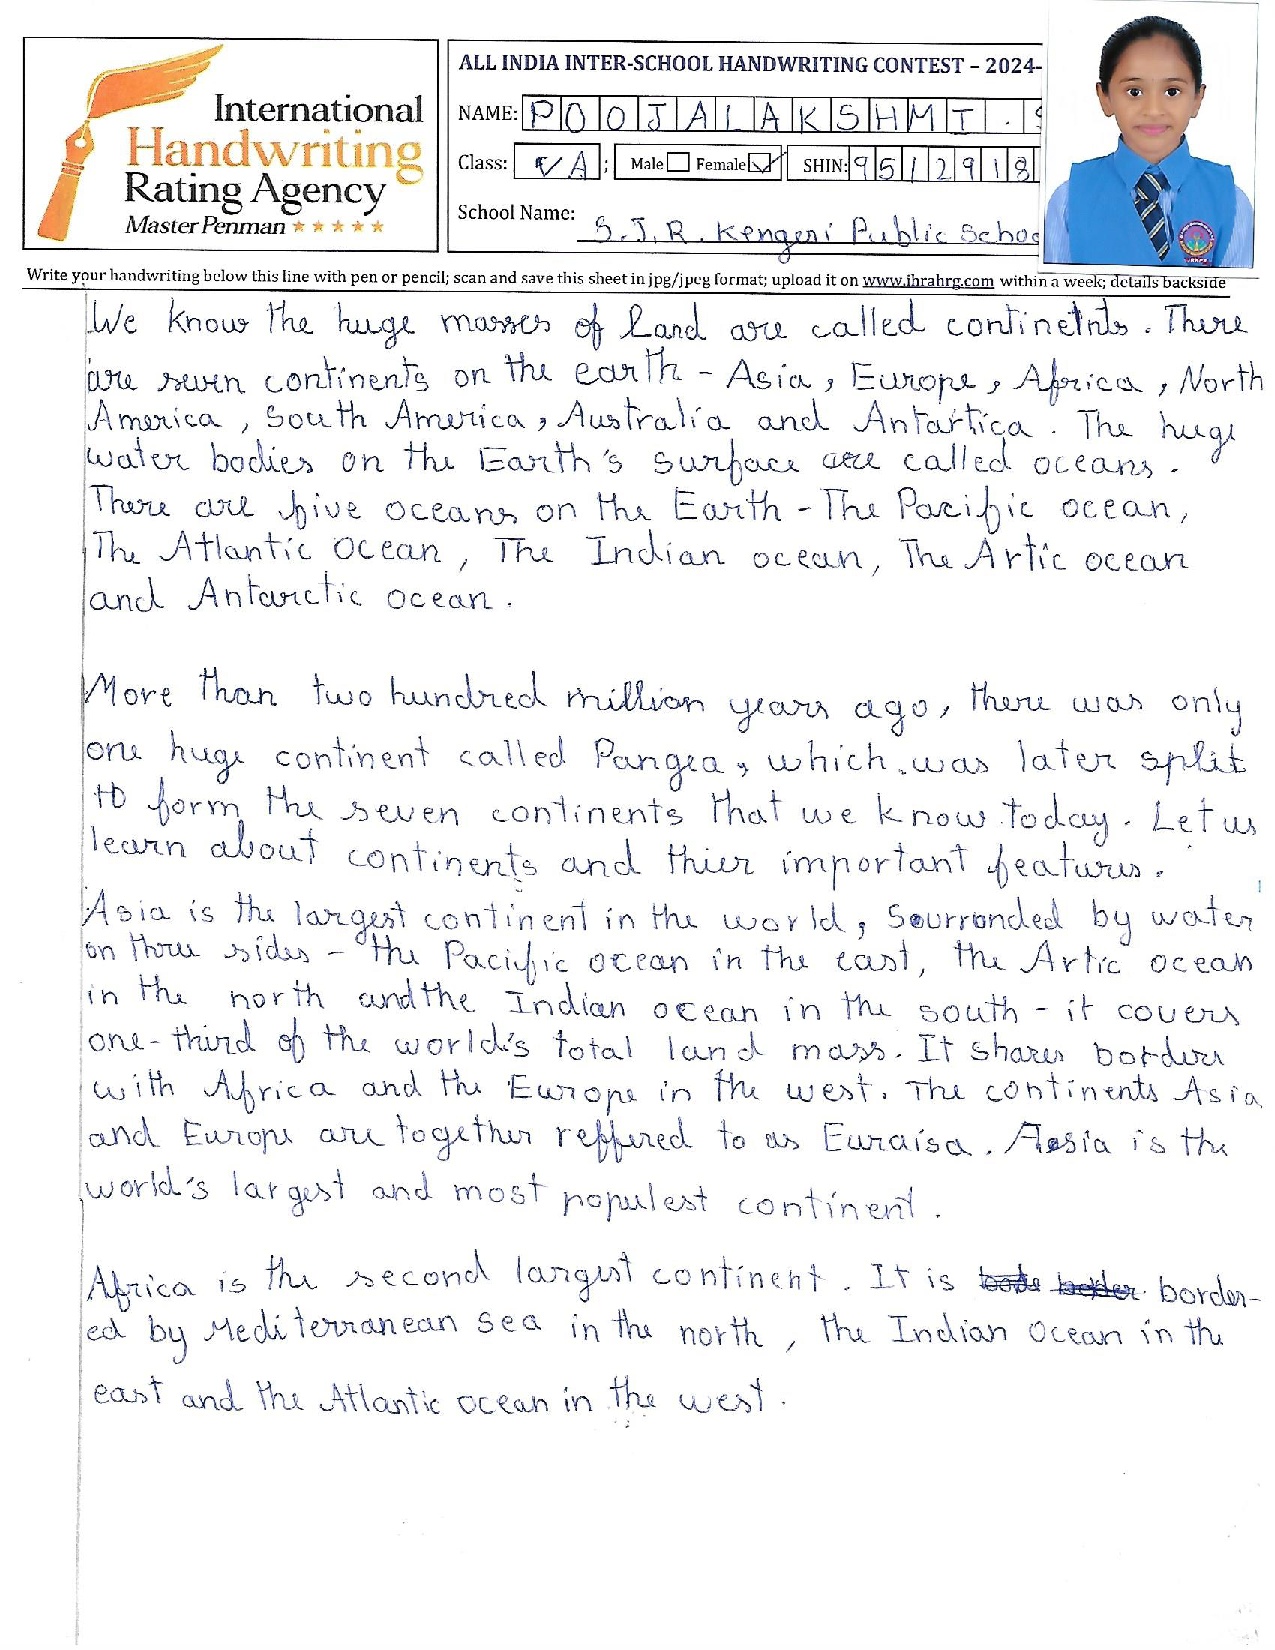 International
Handwriting
Rating Agency
Master Penman
ALL INDIA INTER-SCHOOL HANDWRITING CONTEST – 2024-
NAME: POOJALAKSHMI . S
Class: V A ; Male Female SHIN: 9512918
School Name: S.J.R. Kengeri Public School
Write your handwriting below this line with pen or pencil; scan and save this sheet in jpg/jpeg format; upload it on www.ihrahrg.com within a week; details backside
We know the huge masses of land are called continetnts. There
are seven continents on the earth - Asia, Europe, Africa, North
America, South America, Australia and Antartica. The huge
water bodies on the Earth's surface are called oceans.
There are five oceans on the Earth - The Pacific ocean,
The Atlantic Ocean, The Indian ocean, The Artic ocean
and Antarctic ocean.
More than two hundred million years ago, there was only
one huge continent called Pangea, which was later split
to form the seven continents that we know today. Let us
learn about continents and thier important features.
Asia is the largest continent in the world, Sourronded by water
on three sides - the Pacific ocean in the east, the Artic ocean
in the north and the Indian ocean in the south - it covers
one-third of the world's total land mass. It shares borders
with Africa and the Europe in the west. The continents Asia
and Europe are together reffered to as Euraisa. Asia is the
world's largest and most populest continent.
Africa is the second largest continent. It is border-
ed by Mediterranean sea in the north, the Indian Ocean in the
east and the Atlantic ocean in the west.